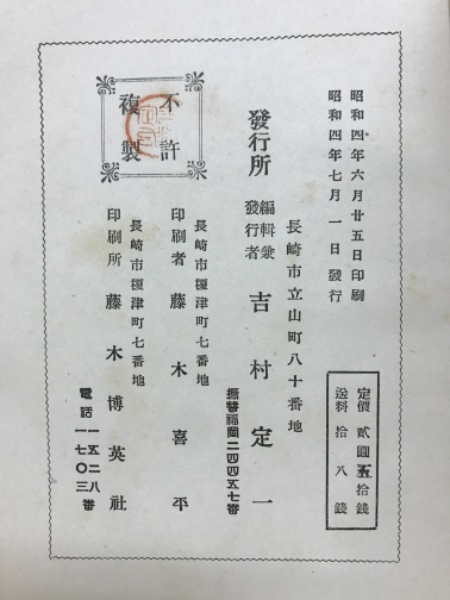 昭和四年六月廿五日印刷
昭和四年七月一日發行
定價 貳圓五拾錢
送料 拾八錢
長崎市立山町八十番地
發行所
編輯兼
發行者
吉村定一
振替福岡二四四五七番
不許
複製
長崎市榎津町七番地
印刷者 藤木喜平
長崎市榎津町七番地
印刷所 藤木博英社
電話 一五二八番
一七〇三番